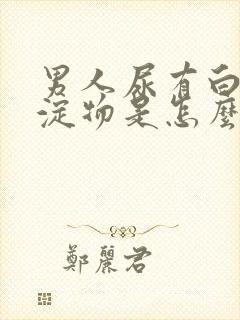 男人尿有白
淀物是怎麼
鄭麗君